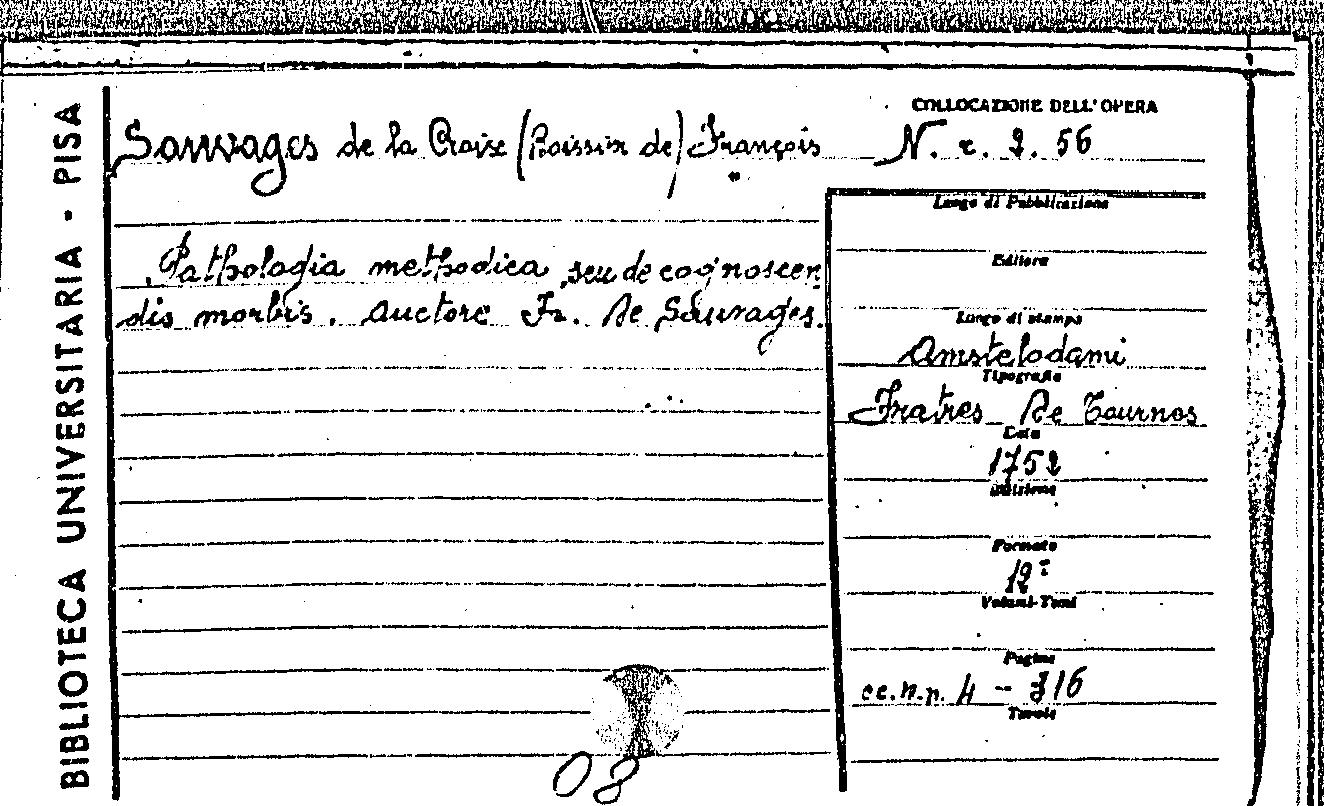 BIBLIOTECA UNIVERSITARIA - PISA
Sauvages de la Croix (Boissier de) François
COLLOCAZIONE DELL'OPERA
N. r. 2. 56
Luogo di Pubblicazione
Editore
Luogo di stampa
Amstelodami
Tipografia
Fratres De Tournes
Data
1752
Edizione
Formato
12°
Volumi-Tomi
Pagine
cc.n.n. 4 - 316
Tavole
Pathologia methodica, seu de cognoscen
dis morbis. Auctore Fr. De Sauvages.
08